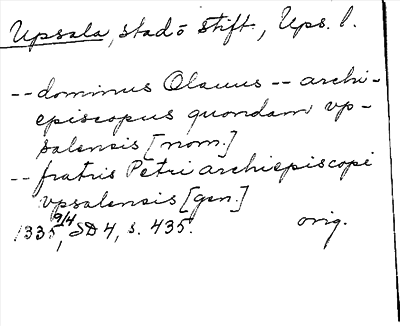 Upsala, stad o stift, Ups. l.
-- dominus Olauus -- archi-
episcopus quondam vp-
salensis [nom.]
-- fratris Petri archiepiscopi
vpsalensis [gen.]
1335 9/4, SD 4, s. 435. orig.